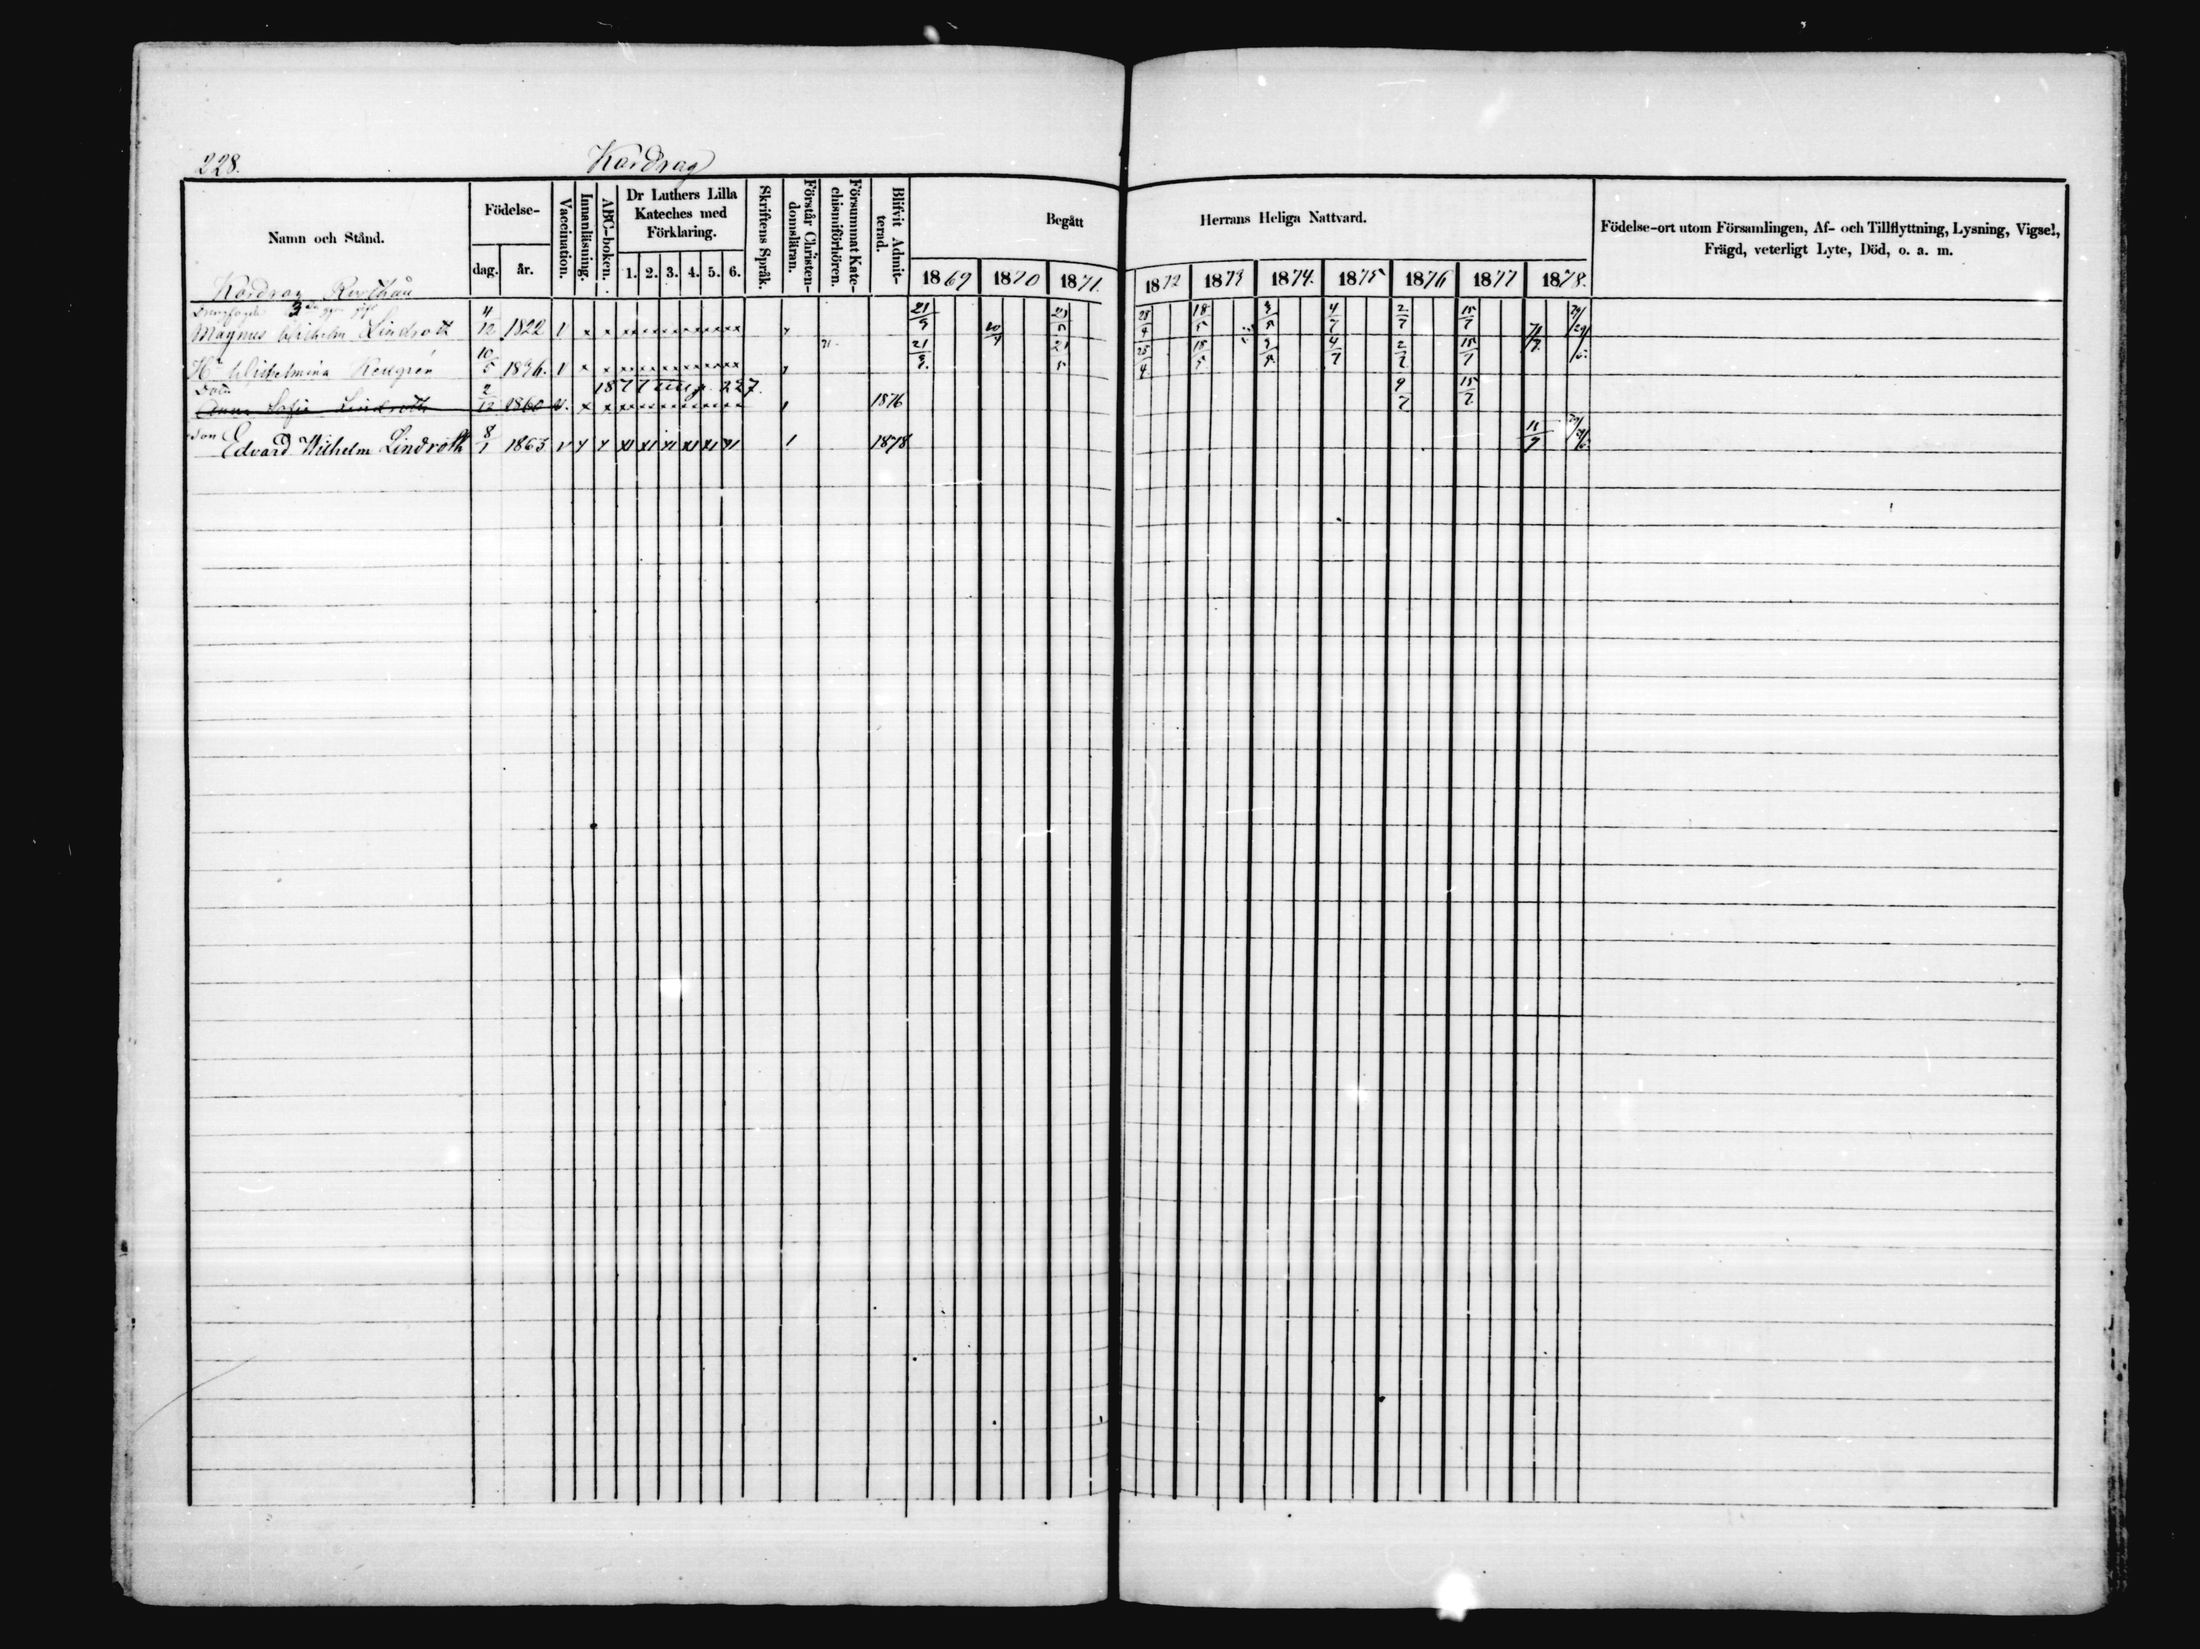 228.
Kardrag
Namn och Stånd.
Födelse-
dag.
år.
Vaccination.
Innanläsning.
ABC-boken.
Dr Luthers Lilla
Kateches med
Förklaring.
1. 2. 3. 4. 5. 6.
Skriftens Språk.
Förstår Christen-
domsläran.
Försummat Kate-
chismiförhören.
Blifvit Admit-
terad.
Begått
Herrans Heliga Nattvard.
1869 1870 1871 1872 1873 1874. 1875 1876 1877 1878.
Födelse-ort utom Församlingen, Af- och Tillflyttning, Lysning, Vigsel,
Frägd, veterligt Lyte, Död, o. a. m.
Kardrag
Magnus Wilhelm Lindroth 4/12 1822 21/3 18/5 3/5 4/7 2/7 15/7
Hu Wilhelmina 10/5 21/3 25/4 18/5 3/5 4/7 2/7 15/7
1877 p. 227.
Anna Sofia Lindroth 2/12 1860 1876 9/7 15/7
son
Edvard Wilhelm Lindroth 8/1 1863 1878 11/7